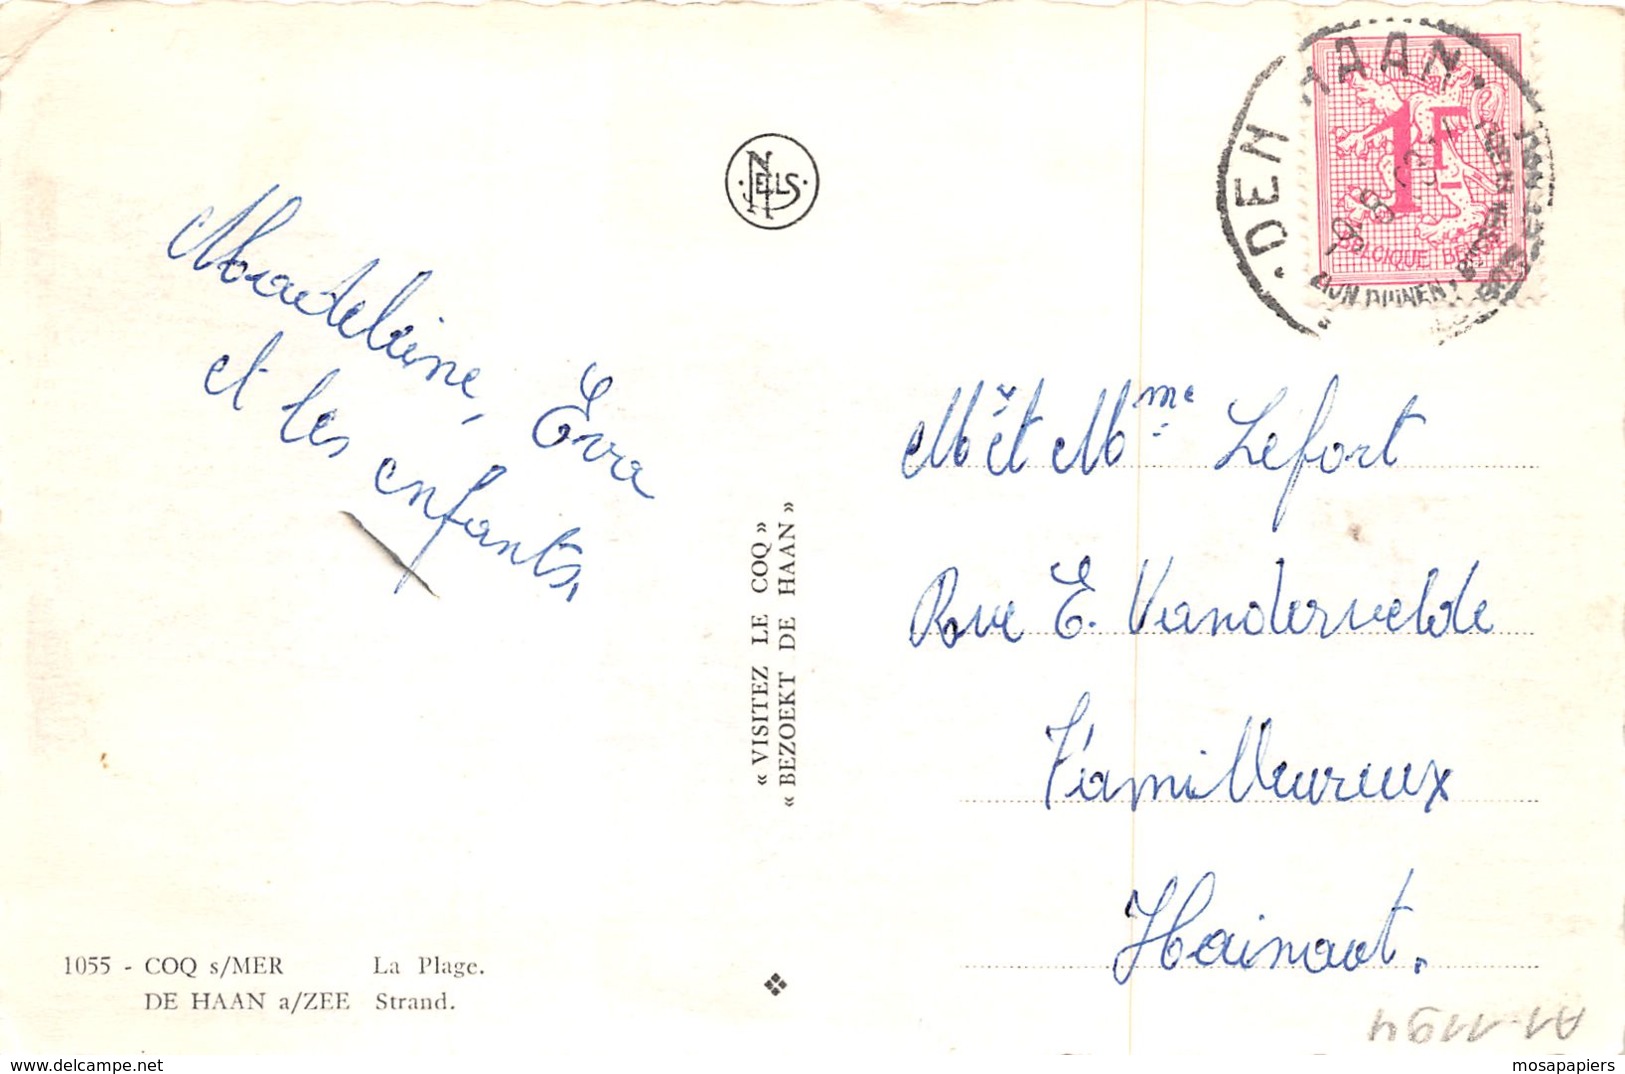 Madeleine, Eva
et les enfants,
NELS
« VISITEZ LE COQ »
« BEZOEKT DE HAAN »
1055 - COQ s/MER La Plage.
DE HAAN a/ZEE Strand.
DEN HAAN
1F
BELGIQUE BELGIË
ZIJN DUINEN,
Mr et Mme Lefort
Rue E. Vandervelde
Familleureux
Hainaut.
A1-1194
mosapapiers